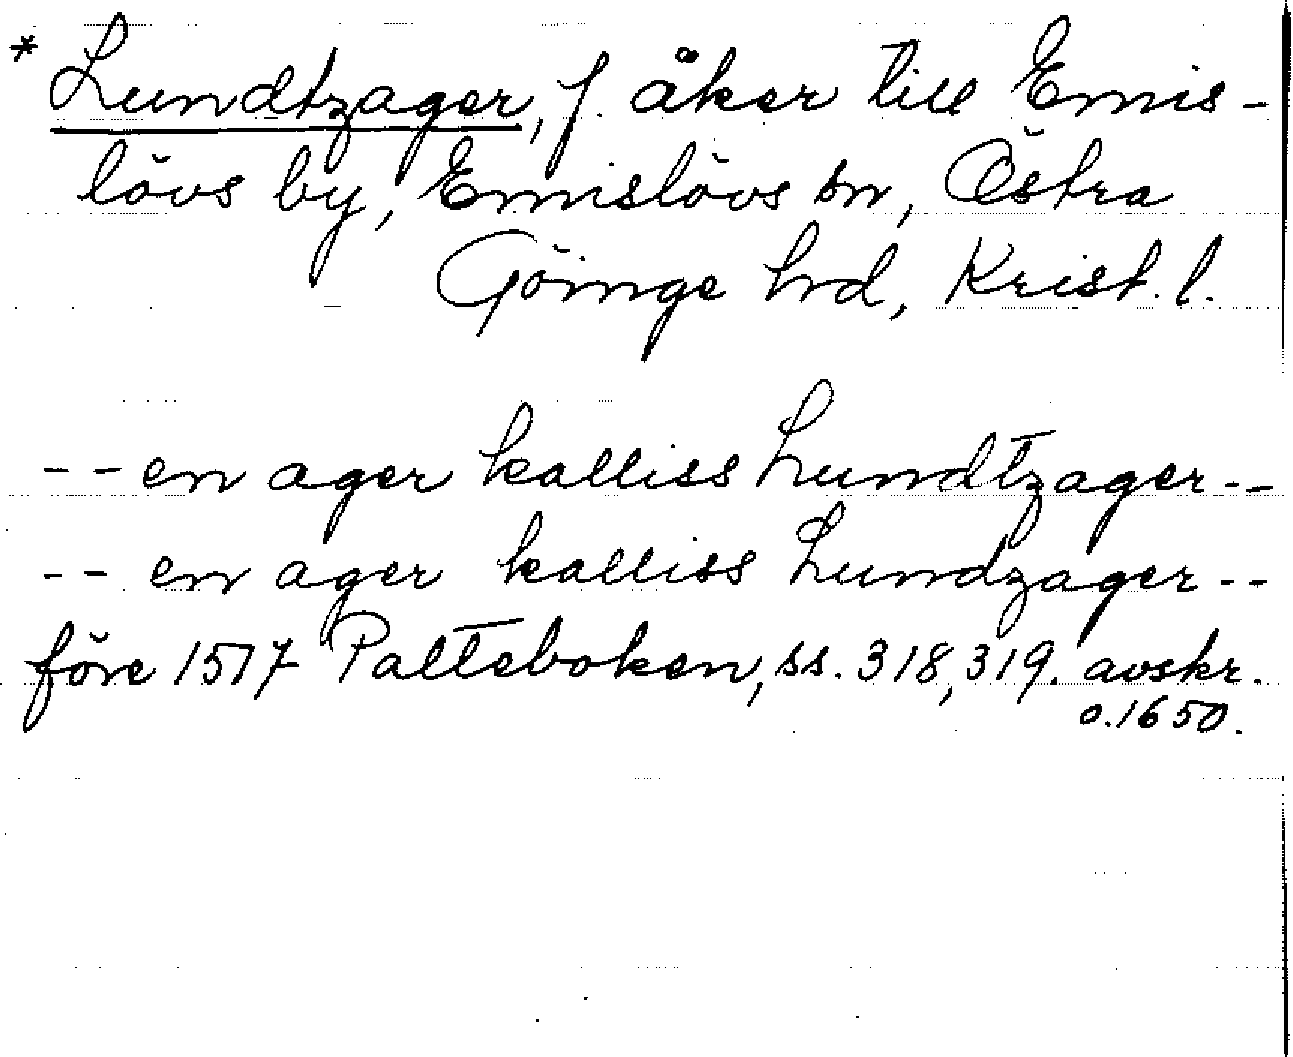 * Lundtzager, f. åker till Emis-
lövs by, Emislövs sn, Östra
Göinge hrd, Krist. l.
-- en ager kalliss Lundtzager --
-- en ager kalliss Lundzager --
före 1517 Palteboken, ss. 318, 319. avskr.
o. 1650.